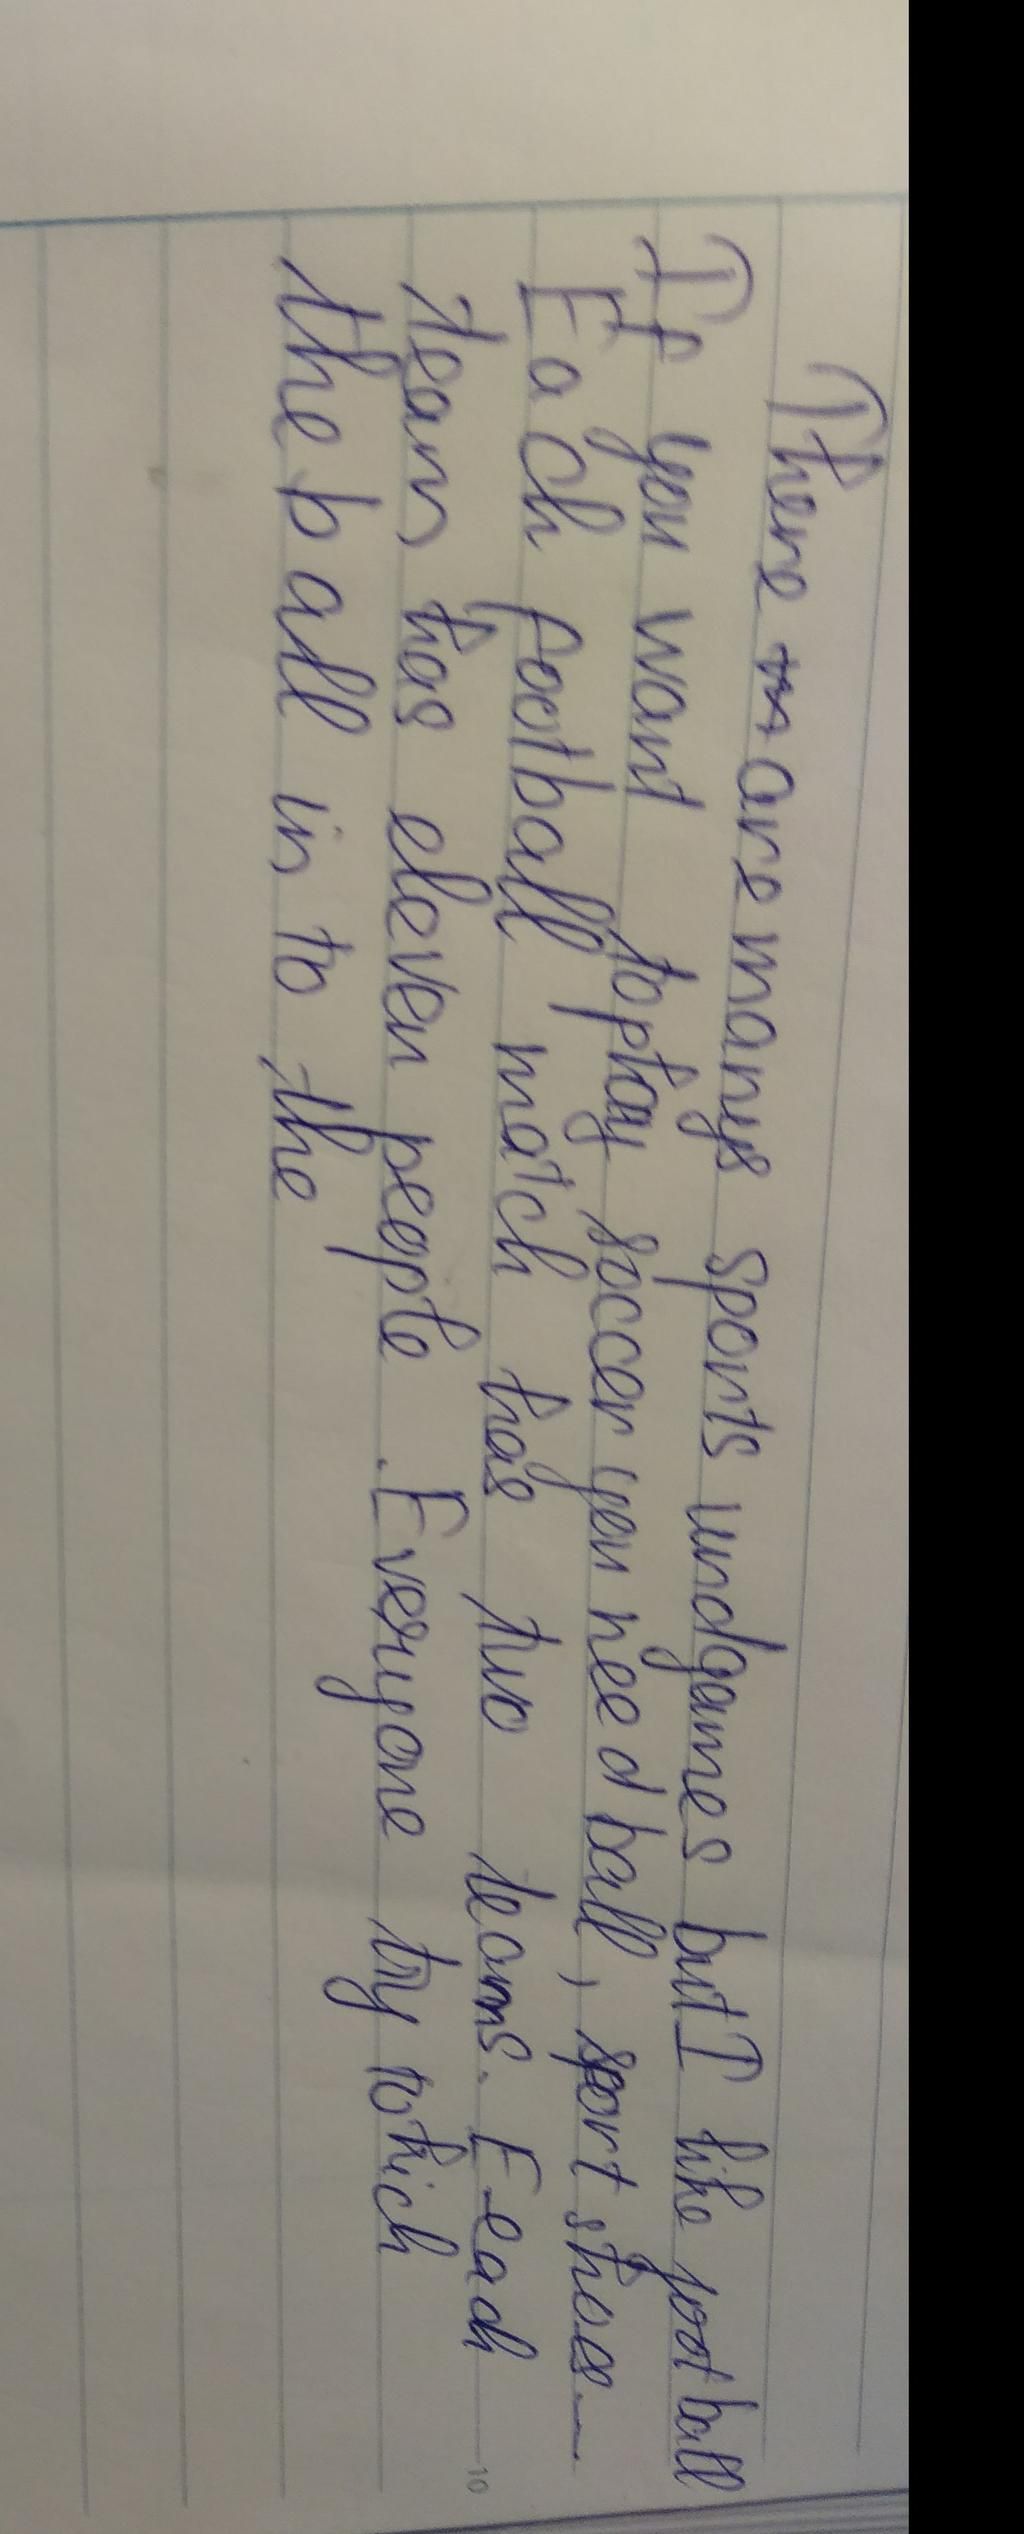 There are manys sports undgames but I like football
If you want to play soccer you need ball, sport shoes
Each football match has two teams. Each
team has eleven people. Everyone try which
the ball in to the
10